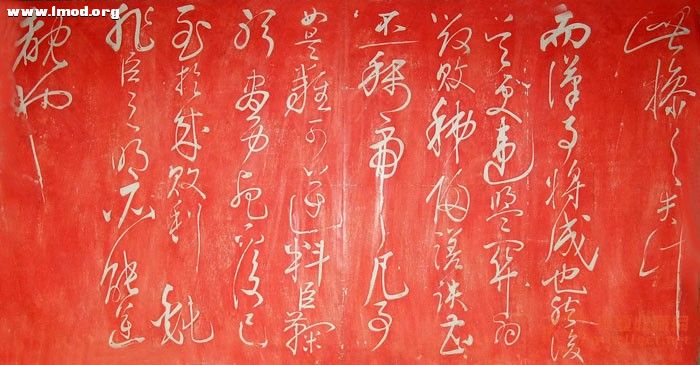 www.lmod.org
此操之失計
而漢事將成也然後
吳更違盟關羽
毀敗秭歸蹉跌曹
丕稱帝凡事
如是難可逆料臣鞠
躬盡力死而後已
至於成敗利鈍
非臣之明所能逆
覩也